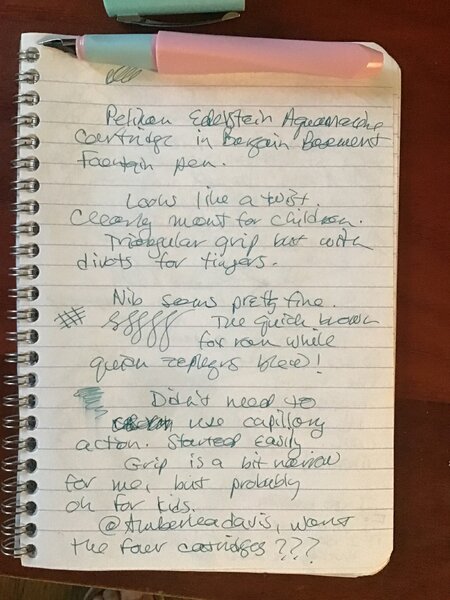 Pelikan Edelstein Aquamarine
cartridge in Bargain Basement
fountain pen.
Looks like a twist.
Clearly meant for children.
Triangular grip but with
divots for fingers.
Nib seems pretty fine.
The quick brown
for ran while
quick zephyrs blew!
Didn't need to
use capillary
action. Started Easily
Grip is a bit narrow
for me, but probably
ok for kids.
@Amberleadavis, want
the four cartridges???